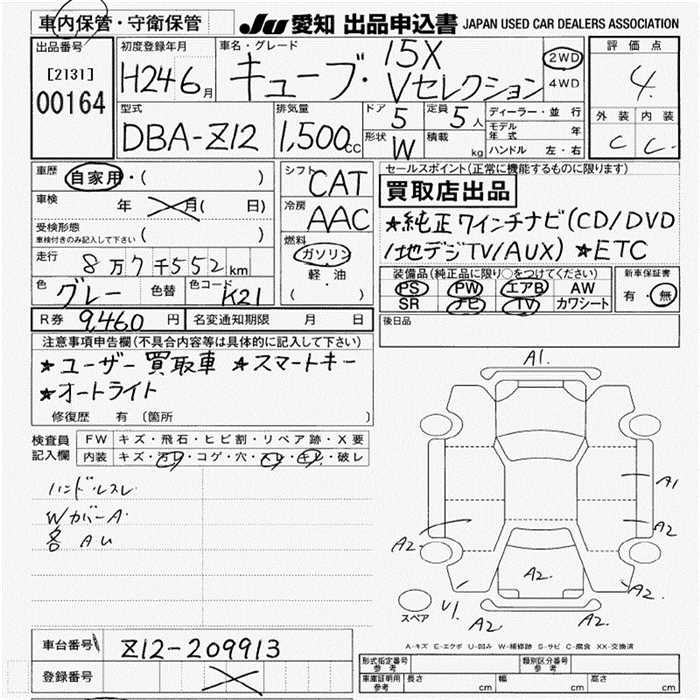 車内保管・守衛保管 JU 愛知 出品申込書 JAPAN USED CAR DEALERS ASSOCIATION
出品番号 初度登録年月 車名・グレード 評価点
[2131] H24 6月 キューブ・ 15X Vセレクション 2WD 4WD 4
00164
型式 排気量 ドア 定員 ディーラー・並行 外装 内装
DBA-Z12 1,500cc 5 5人 モデル年式 年 C C
形状 積載 ハンドル 左・右
W kg
車歴 自家用・( ) シフト CAT セールスポイント(正常に機能するものに限ります)
車検 年 月( 日) 冷房 AAC 買取店出品
受検形態 ( )
車検付きのみ記入して下さい
★純正ワインチナビ(CD/DVD
/地デジTV/AUX) ★ETC
走行 8万7千552km 燃料 ガソリン 軽油 ( )
装備品(純正品に限り○をつけてください) 新車保証書
PS PW エアB AW 有・無
SR ナビ TV カワシート
色 グレー 色替 色コード K21
R券 9,460円 名変通知期限 月 日 後日品
注意事項申告欄(不具合内容等は具体的に記入して下さい)
★ユーザー買取車 ★スマートキー
★オートライト
修復歴 有 〔箇所 〕
検査員記入欄 FW キズ・飛石・ヒビ割・リペア跡・X要
内装 キズ・汚レ・コゲ・穴・スレ・キレ・破レ
ハンドルスレ
WカバーA
各 AU
A1.
A1
A2
A2
A2.
A2.
A2
V1.
A2
A2
スペア
A-キズ E-エクボ U-凹み W-補修跡 S-サビ C-腐食 XX-交換済
車台番号 Z12-209913
登録番号
形式指定番号 参考 類別区分番号 参考
車庫証明用 参考 長さ cm 幅 cm 高さ cm